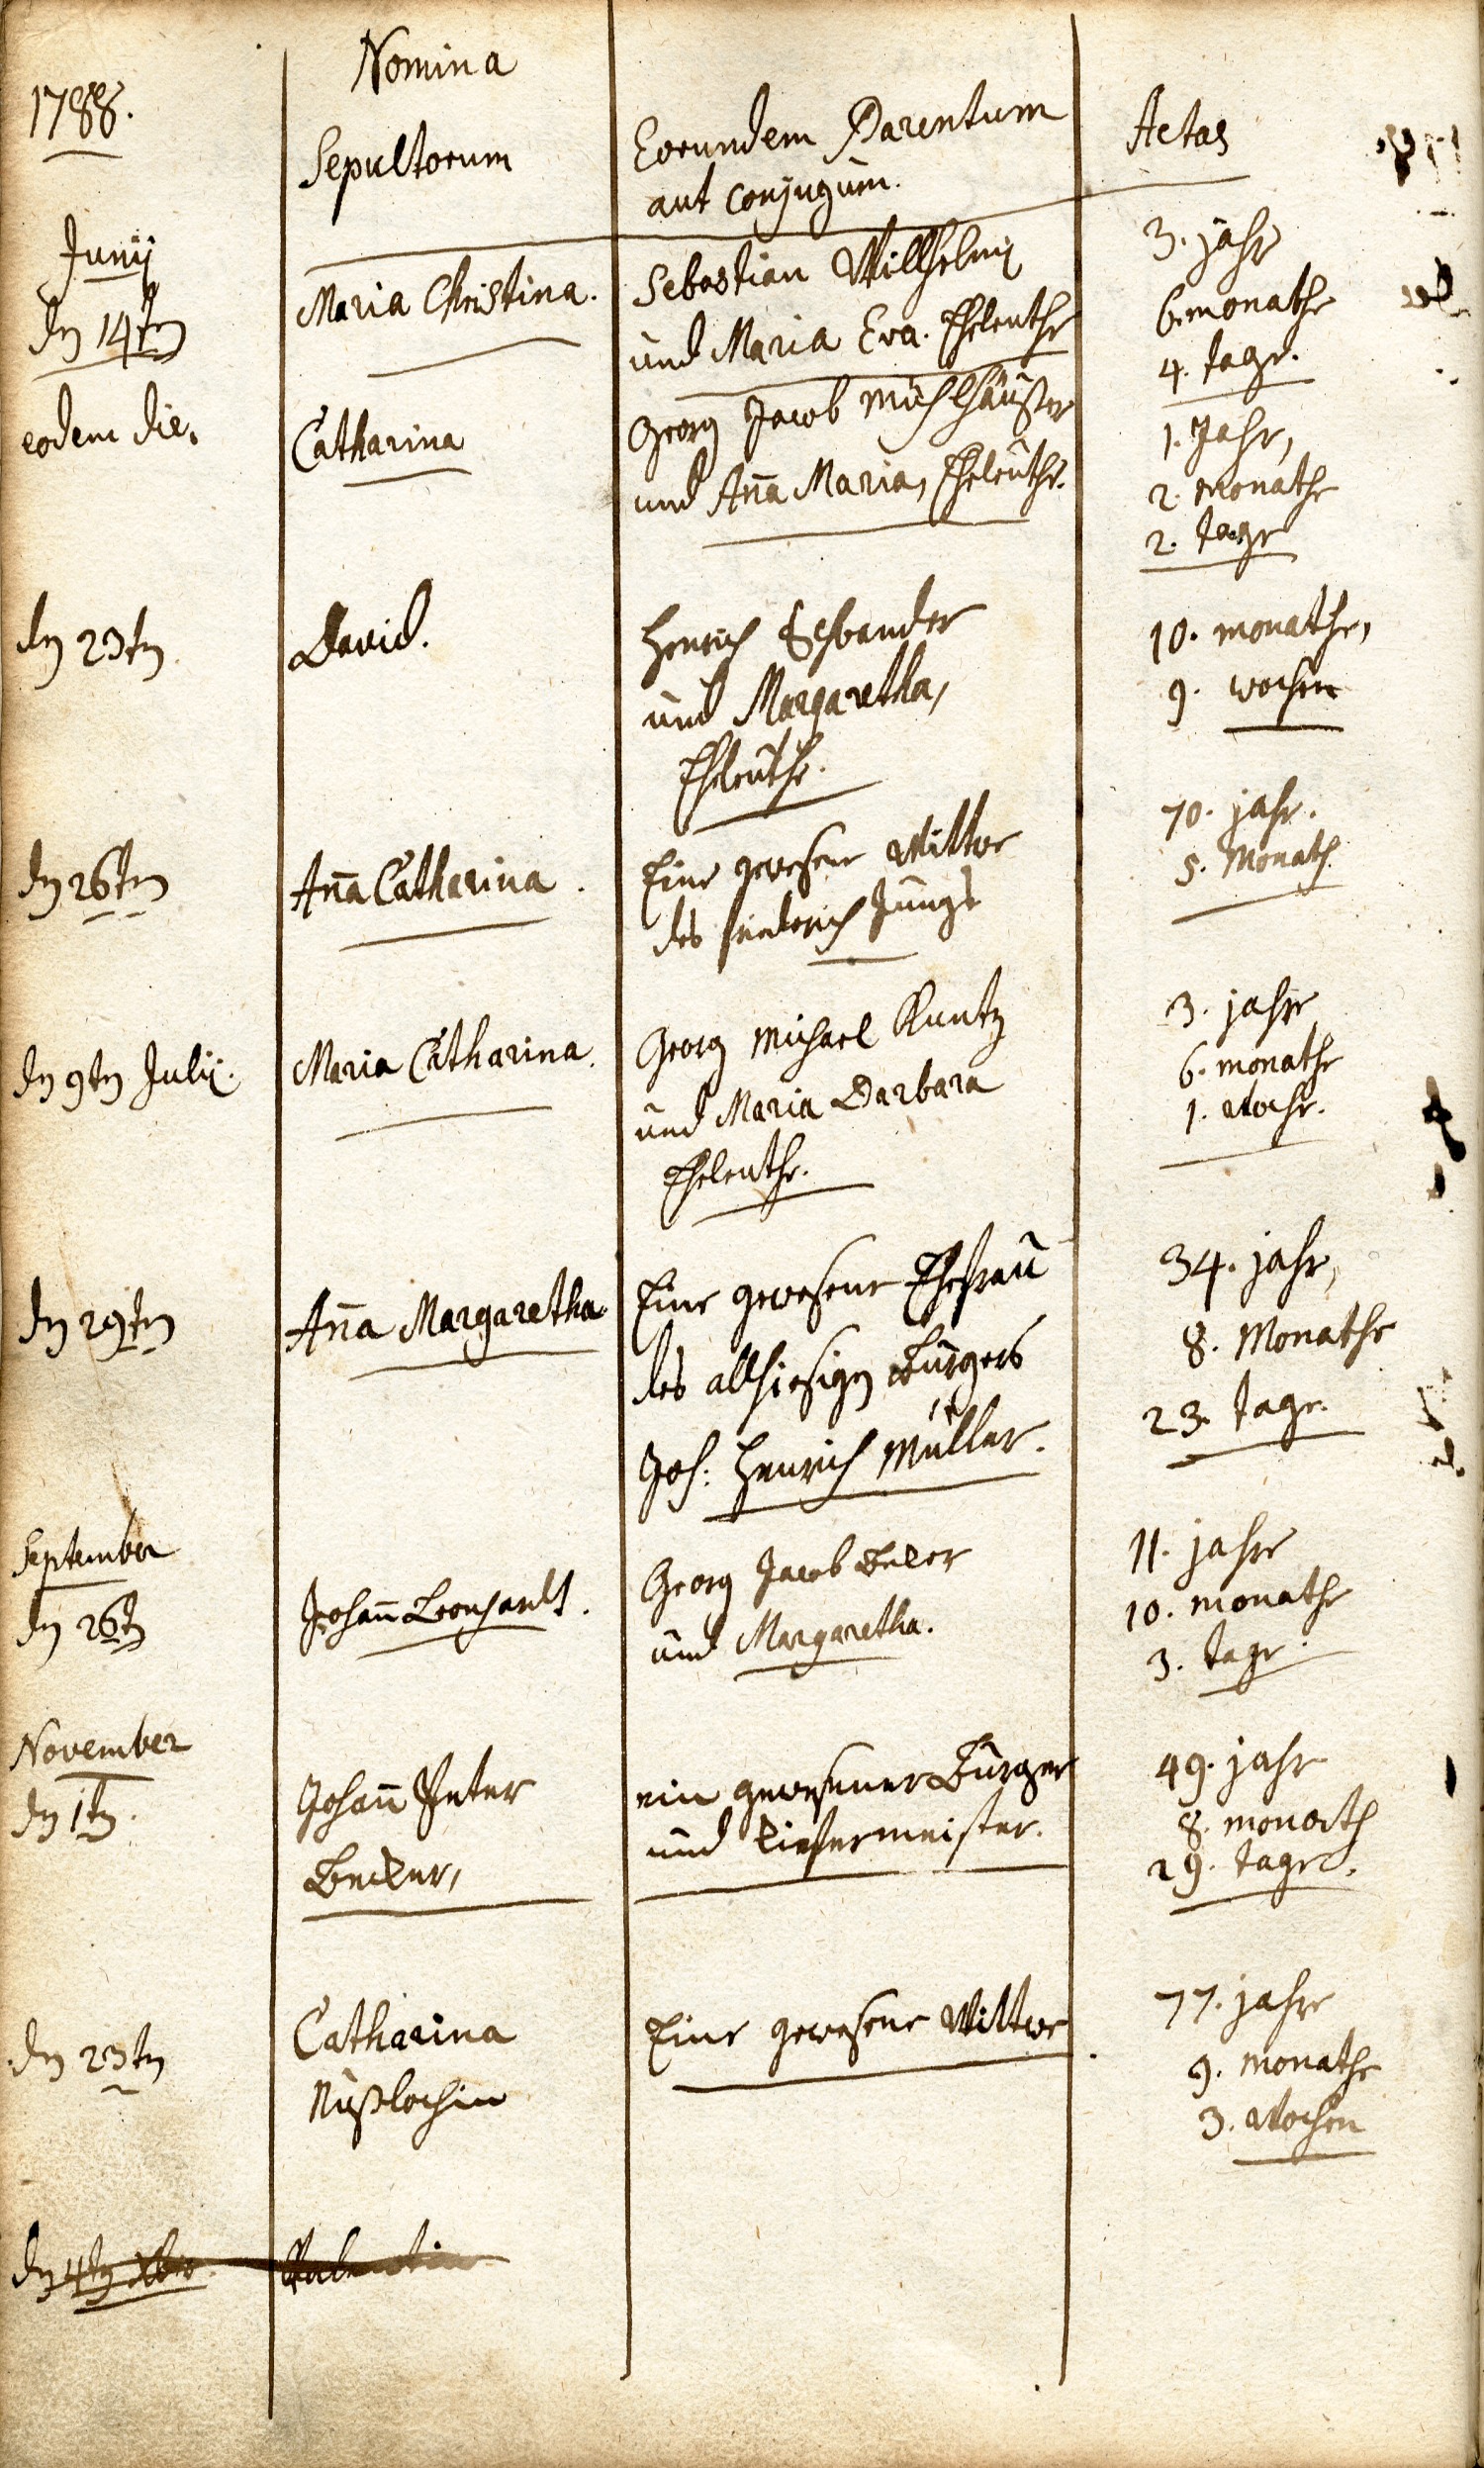 1788.
Nomina
Sepultorum
Eorundem Parentum
aut conjugum.
Aetas
Junij
den 14ten
Maria Christina.
Sebastian Willhelmj
und Maria Eva. Eheleuthe
3. jahr
6. monathe
4. tage.
eodem die.
Catharina
Georg Jacob Mühlhäußer
und Aña Maria, Eheleuthe.
1. Jahr,
2. monathe
2. tage
den 23ten
David.
Henrich
und Margaretha,
Eheleuthe.
10. monathe,
9. wochen
den 26ten
Aña Catharina.
Eine gewesene Wittwe
des friederich Jungs
70. jahr.
5. Monath.
den 9ten Julij.
Maria Catharina.
Georg Michael Kuntz
und Maria Barbara
Eheleuthe.
3. jahre
6. monathe
1. Woche.
den 29ten
Aña Margaretha.
Eine gewesene Ehefrau
des allhiesigen Bürgers
Joh: Henrich Müller.
34. jahr,
8. Monathe
23. tage.
September
den 26ten
Johañ Leonhardt.
Georg Jacob
und Margaretha.
11. jahre
10. monathe
3. tage.
November
den 1ten.
Johañ Peter
Becker,
ein gewesener Bürger
und Kiefermeister.
49. jahr
8. monath
29. tage.
den 23ten
Catharina
Nußlochin
Eine gewesene Wittwe
77. jahre
9. monathe
3. Wochen
den 4ten Xbr.
Valentin